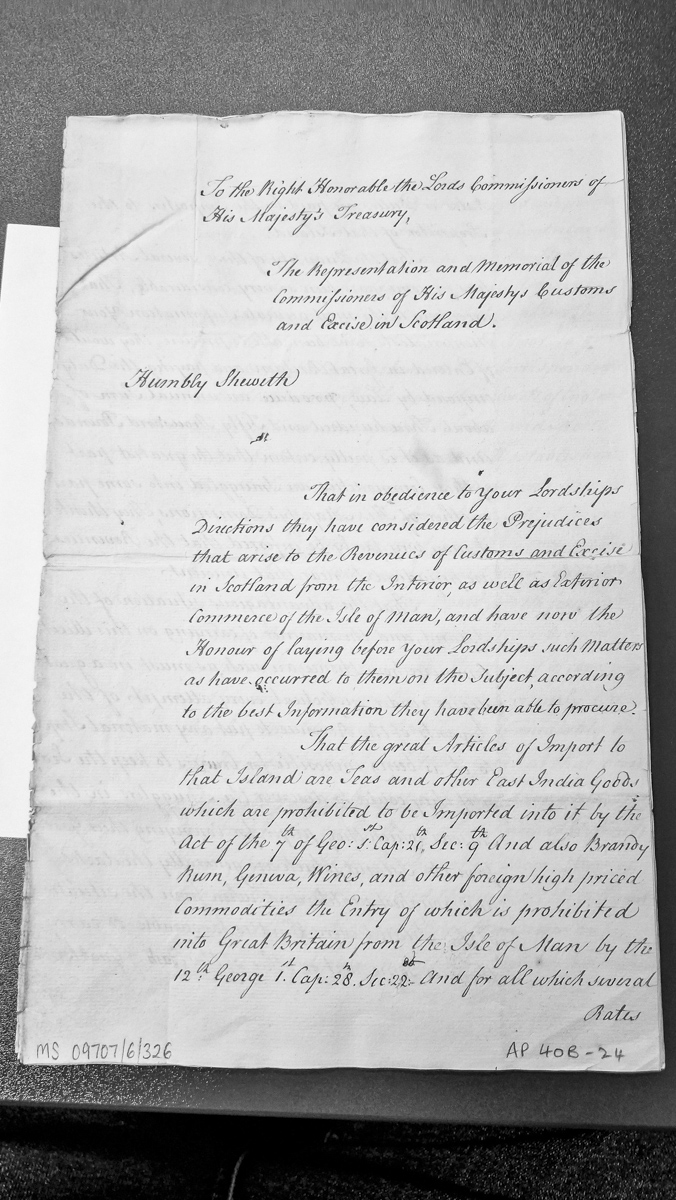 To the Right Honorable the Lords Commissioners of
His Majesty's Treasury,
The Representation and Memorial of the
Commissioners of His Majestys Customs
and Excise in Scotland.
Humbly Sheweth
That in obedience to Your Lordships
Directions they have considered the Prejudices
that arise to the Revenues of Customs and Excise
in Scotland from the Interior, as well as Exterior
Commerce of the Isle of Man, and have now the
Honour of laying before Your Lordships such Matters
as have occurred to them on the Subject, according
to the best Information they have been able to procure.
That the great Articles of Import to
that Island are Teas and other East India Goods
which are prohibited to be Imported into it by the
Act of the 7th of Geo: 1st Cap: 21, Sec: 9th And also Brandy
Rum, Geneva, Wines, and other foreign high priced
Commodities the Entry of which is prohibited
into Great Britain from the Isle of Man by the
12th George 1st Cap: 28. Sec: 22: And for all which several
Rates
MS 09707/6/326
AP 40B-24